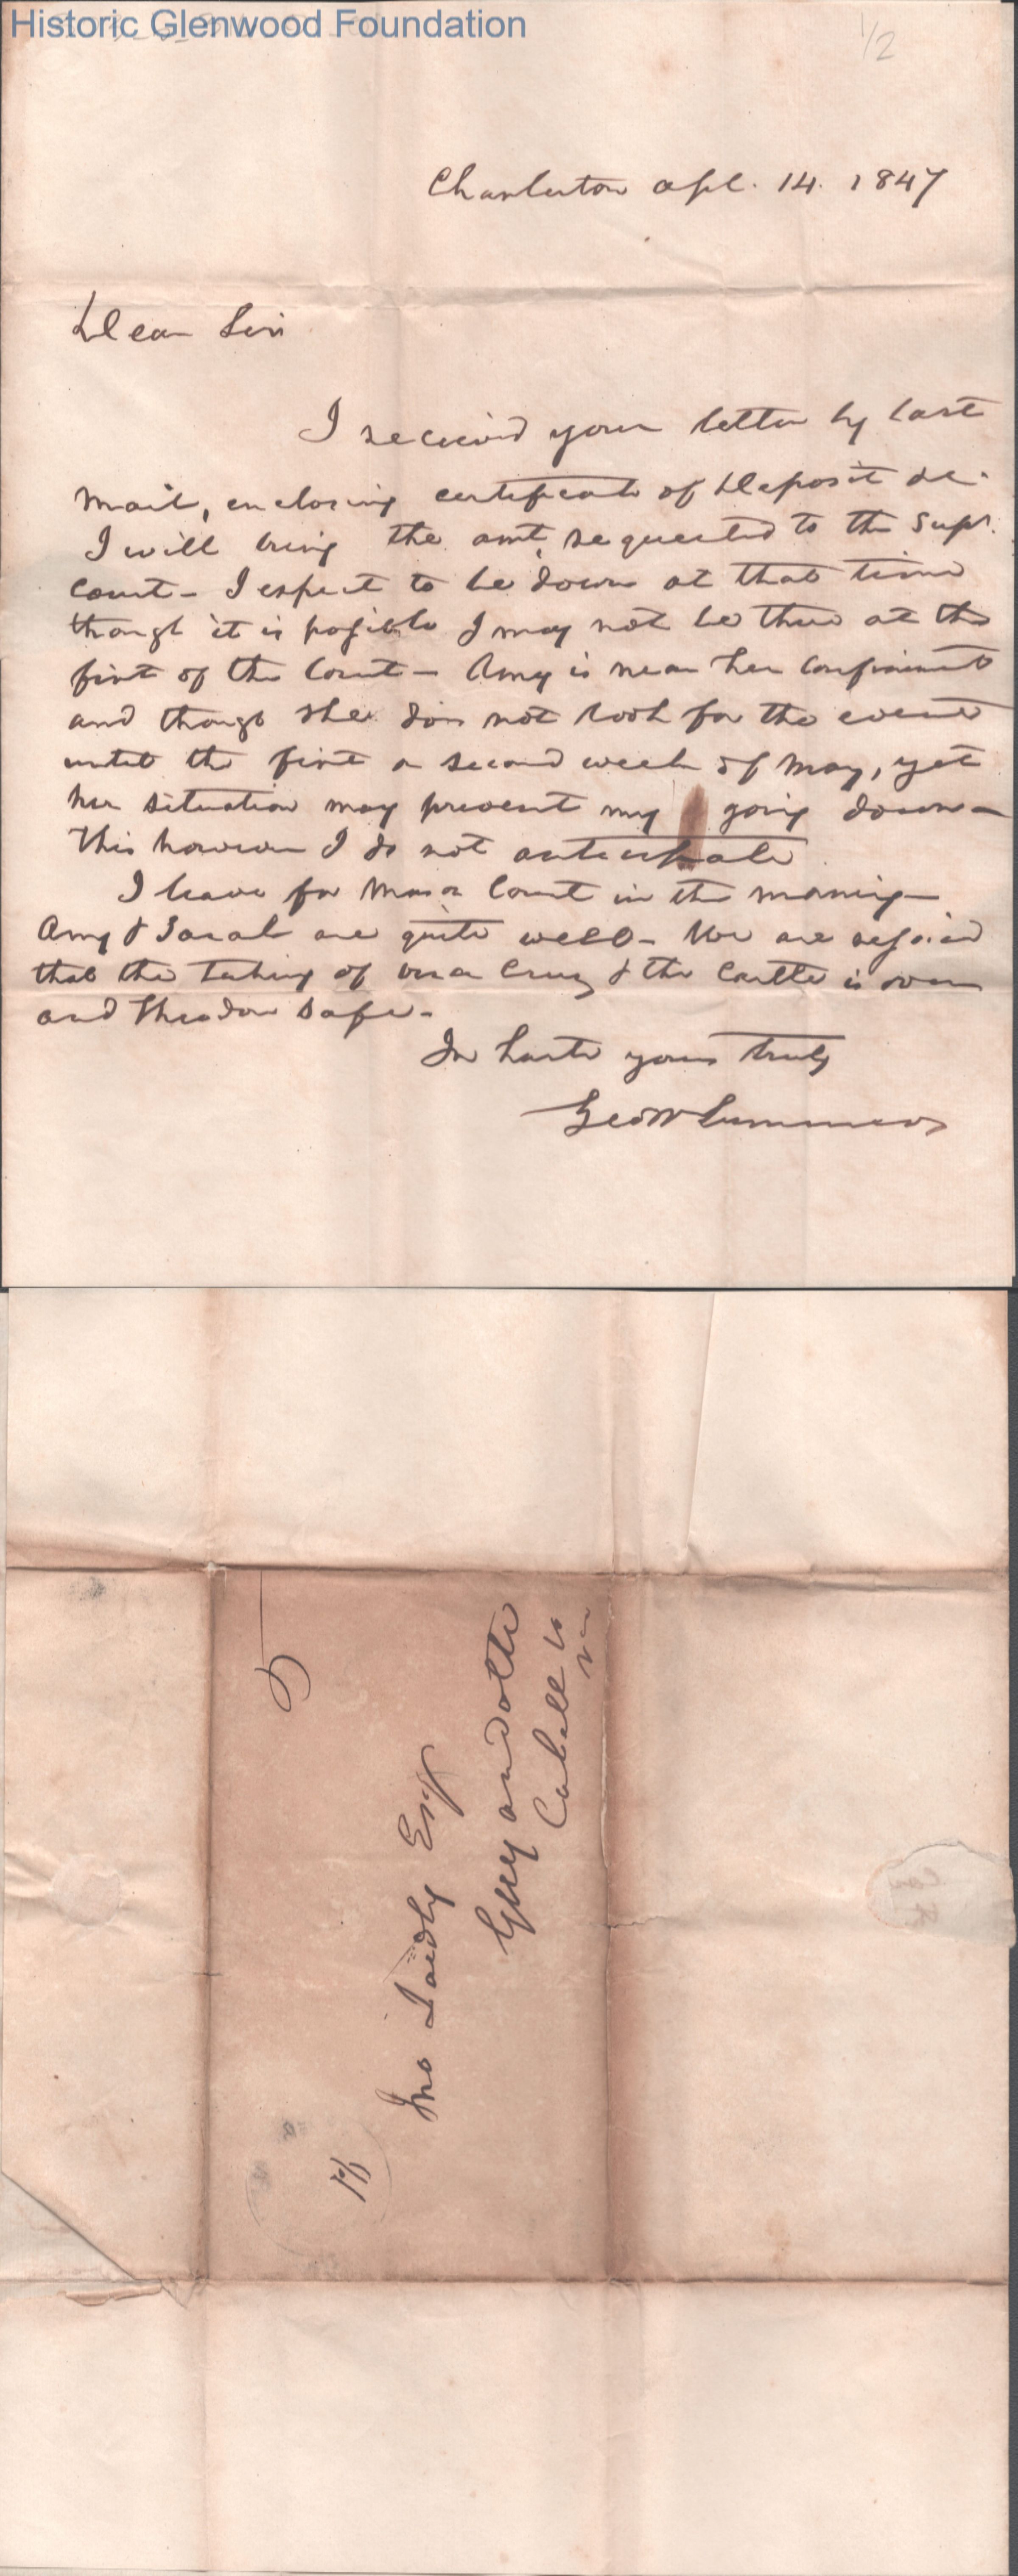 Historic Glenwood Foundation
1/2
Charleston Apl. 14. 1847
Dear Sir
I received your letter by last
mail, enclosing certificate of Deposit &c.
I will bring the amt. requested to the Supr.
Court - I expect to be down at that time
though it is possible I may not be there at the
first of the Court - Amy is near her confinement
and though she does not look for the event
until the first or second week of May, yet
her situation may prevent my going down -
This however I do not anticipate
I leave for Mason Court in the morning -
Amy & Sarah are quite well - We are rejoiced
that the taking of Vera Cruz & the Castle is over
and Theodore safe -
In haste yours truly
Geo W Summers
5
Jno Laidly Esqr
Guyandotte
Cabell Co
Va